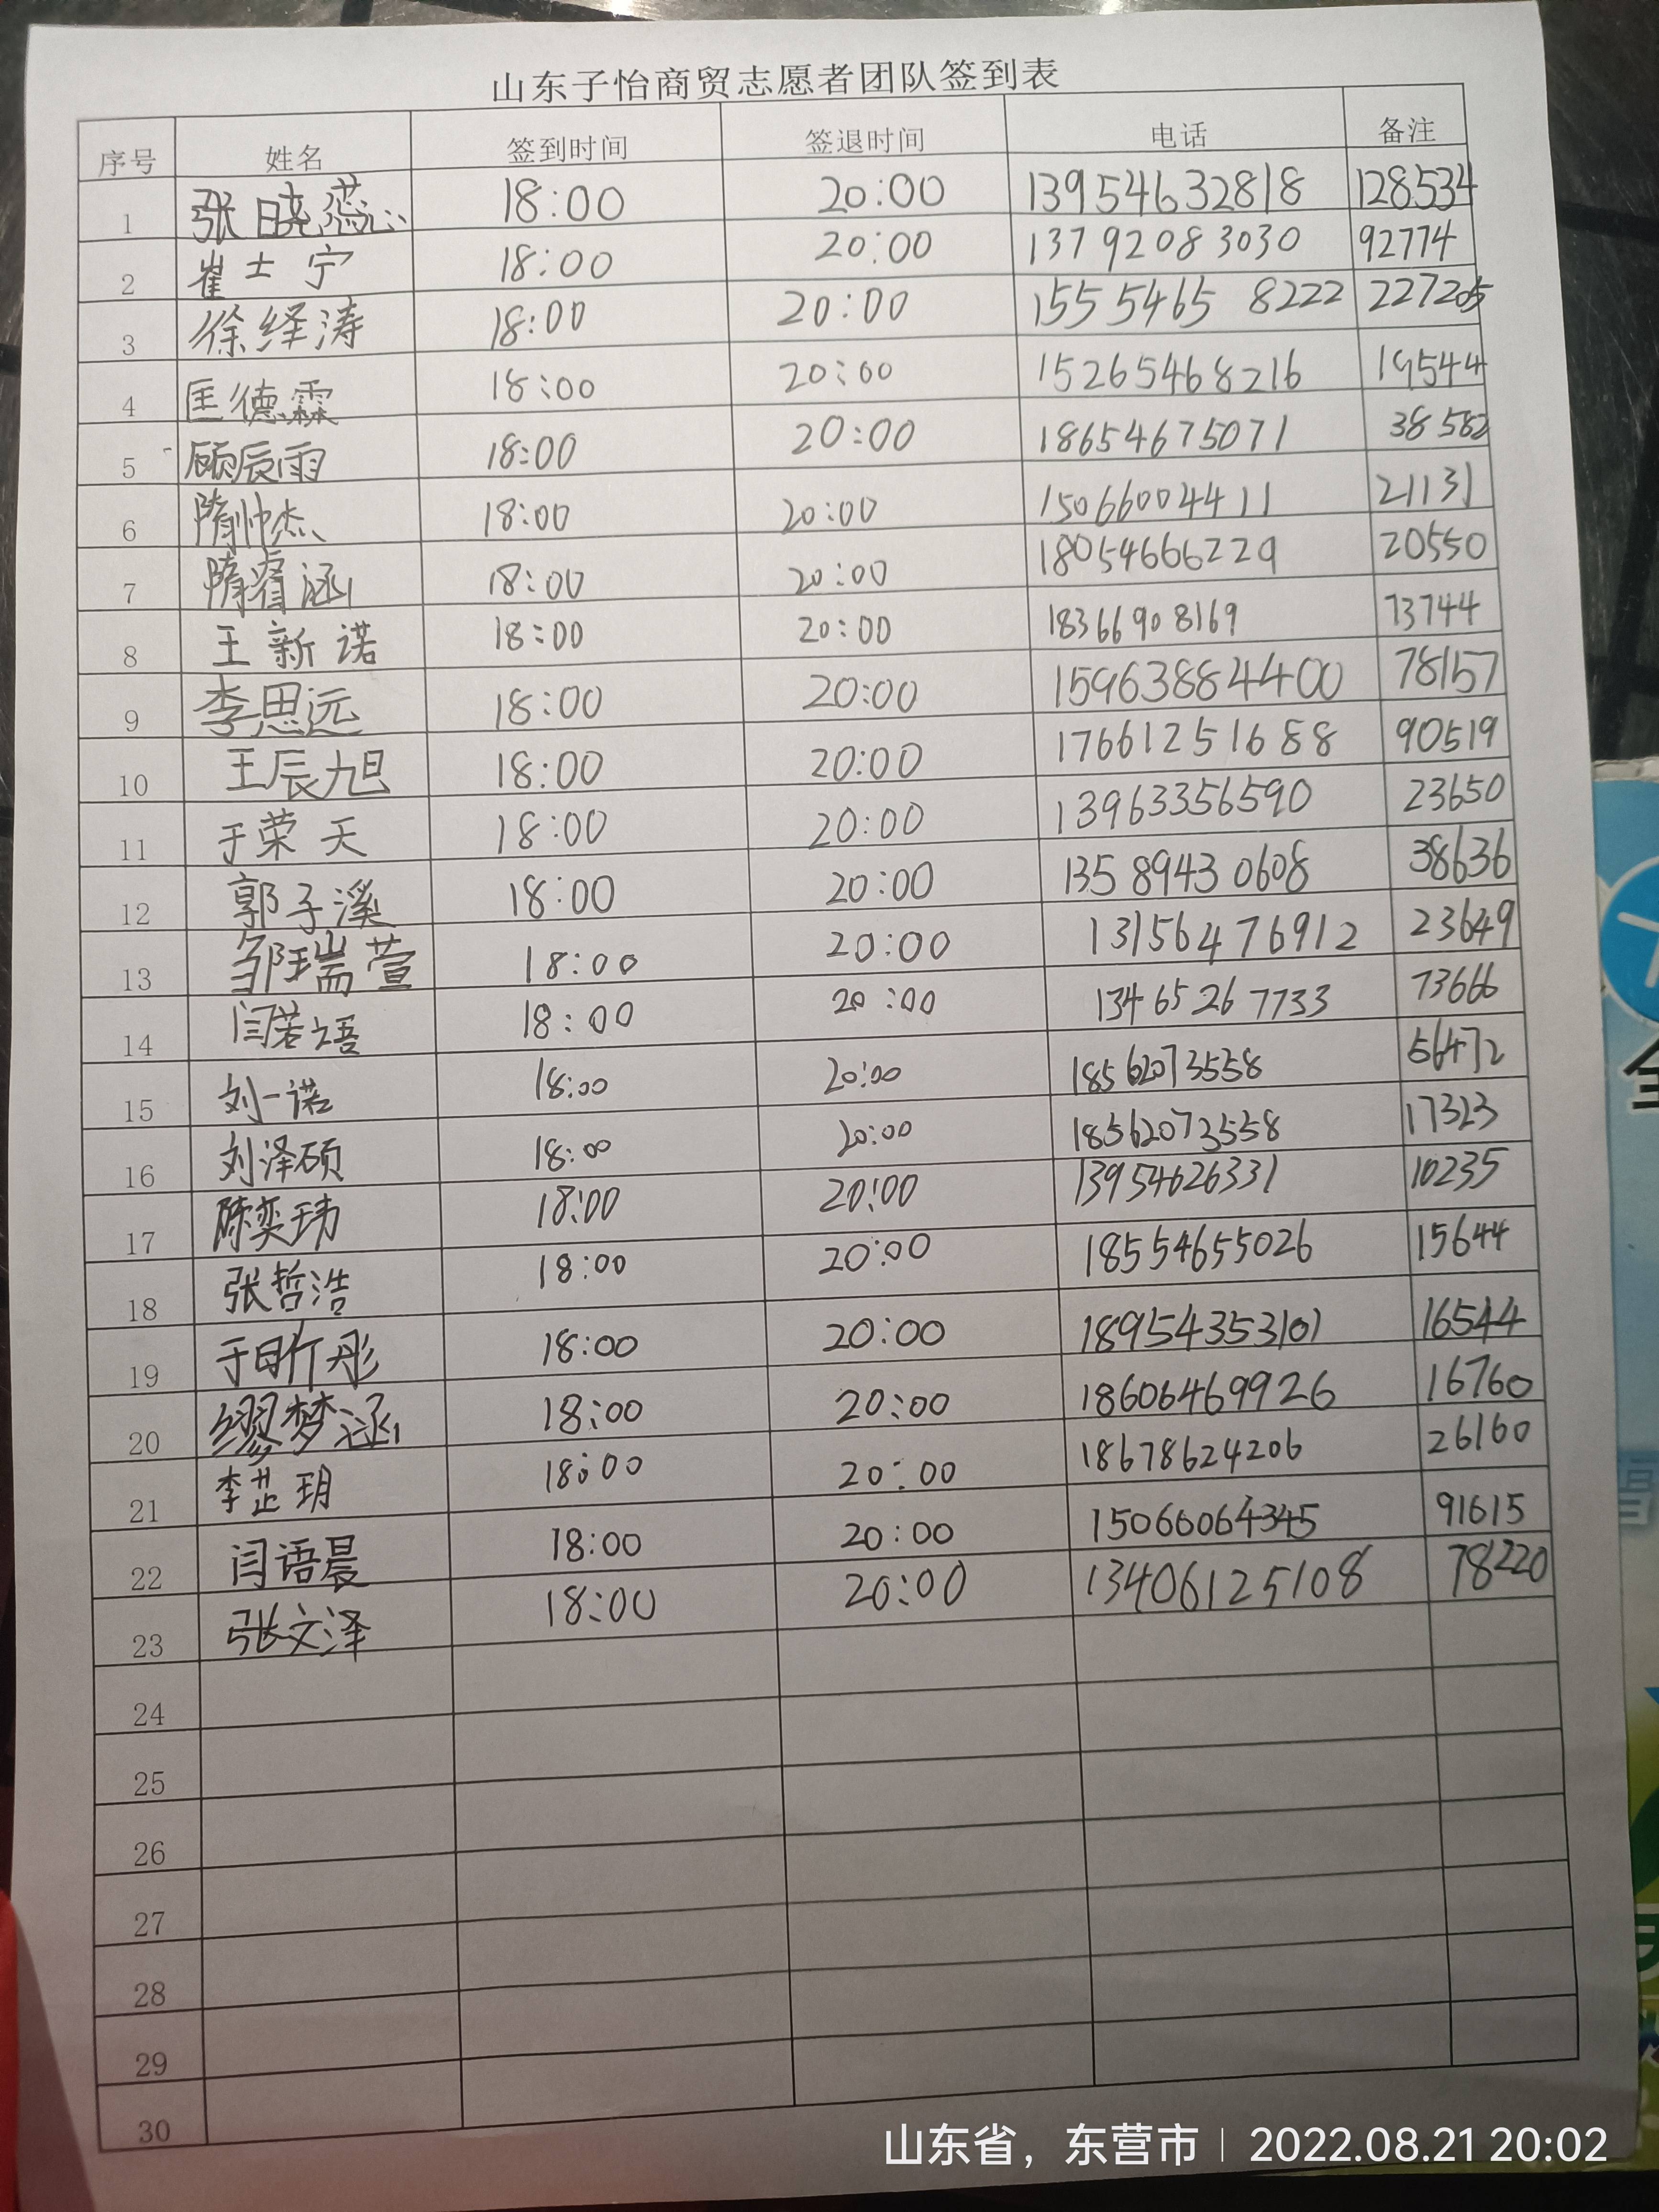 山东子怡商贸志愿者团队签到表
序号 姓名 签到时间 签退时间 电话 备注
1 张晓蕊 18:00 20:00 13954632818 128534
2 崔士宁 18:00 20:00 13792083030 92774
3 徐绎涛 18:00 20:00 155 5465 8222 227205
4 匡德霖 18:00 20:00 15265468216 19544
5 顾辰雨 18:00 20:00 18654675071 38582
6 隋帅杰 18:00 20:00 15066004411 21131
7 隋睿涵 18:00 20:00 18054666229 20550
8 王新诺 18:00 20:00 18366908169 73744
9 李思远 18:00 20:00 159638884400 78157
10 王辰旭 18:00 20:00 17661251688 90519
11 于荣天 18:00 20:00 13963356590 23650
12 郭子溪 18:00 20:00 13589430608 38636
13 邹瑞萱 18:00 20:00 13156476912 23649
14 闫若语 18:00 20:00 13465267733 73666
15 刘一诺 18:00 20:00 18562073558 56472
16 刘泽硕 18:00 20:00 18562073558 17323
17 陈奕玮 18:00 20:00 13954626331 10235
18 张哲浩 18:00 20:00 18554655026 15644
19 于昕彤 18:00 20:00 18954353101 16544
20 缪梦涵 18:00 20:00 18606469926 16760
21 李芷玥 18:00 20:00 18678624206 26160
22 闫语晨 18:00 20:00 15066064345 91615
23 张文泽 18:00 20:00 13406125108 78220
24
25
26
27
28
29
30
山东省，东营市 2022.08.21 20:02